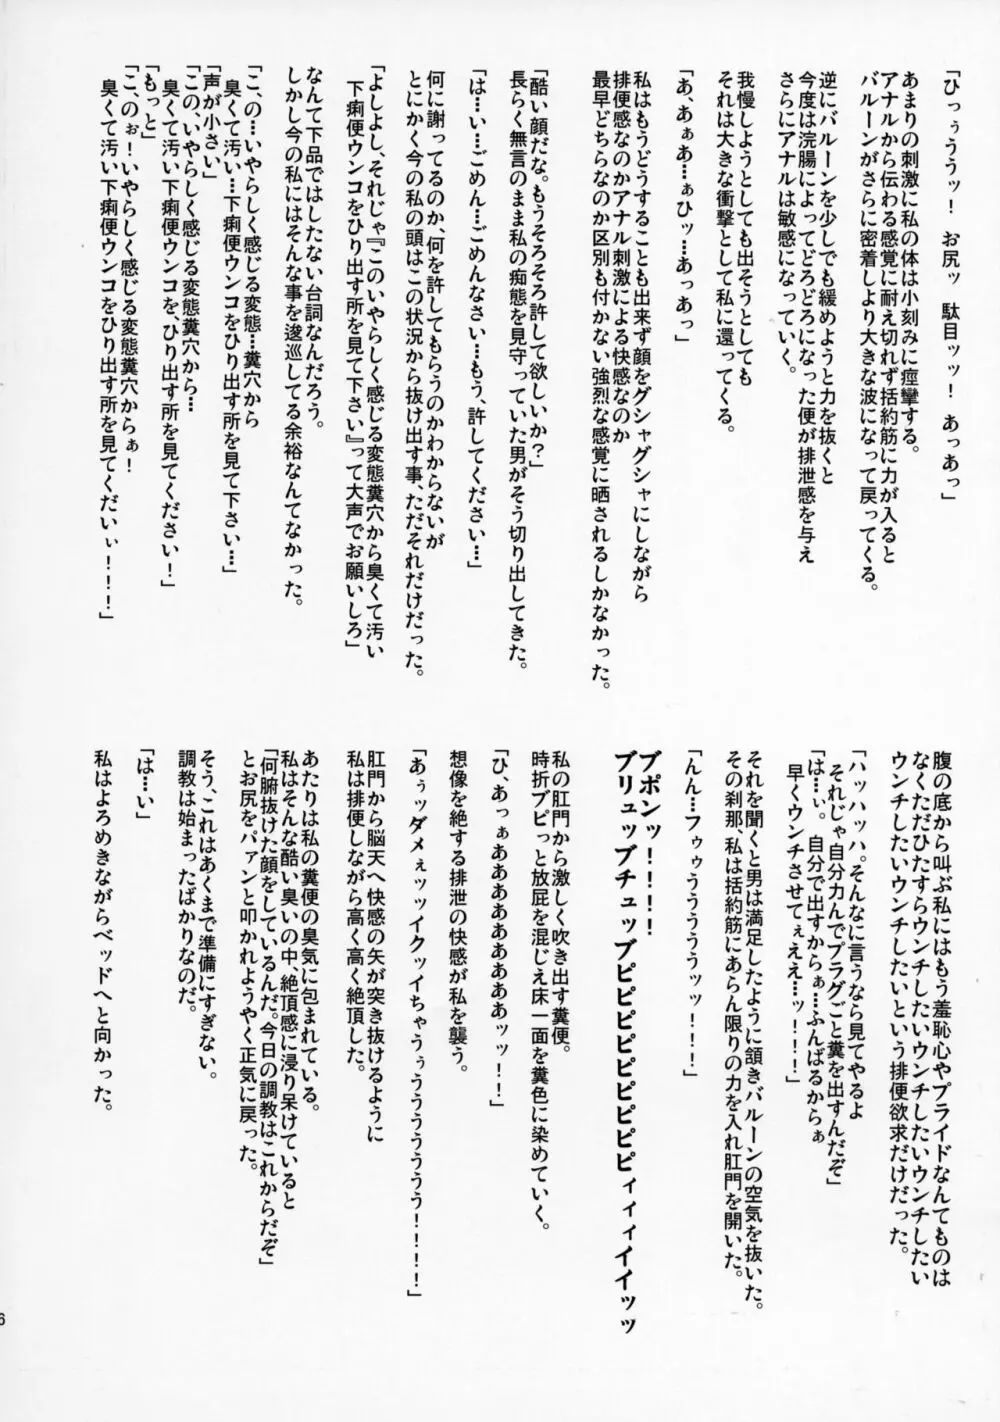 「ひっぅううッ！　お尻ッ　駄目ッッ！　あっあっ」
あまりの刺激に私の体は小刻みに痙攣する。
アナルから伝わる感覚に耐え切れず括約筋に力が入ると
バルーンがさらに密着しより大きな波になって戻ってくる。
逆にバルーンを少しでも緩めようと力を抜くと
今度は浣腸によってどろどろになった便が排泄感を与え
さらにアナルは敏感になっていく。
我慢しようとしても出そうとしても
それは大きな衝撃として私に還ってくる。
「あ、あぁあ…ぁひッ…あっあっ」
私はもうどうすることも出来ず顔をグシャグシャにしながら
排便感なのかアナル刺激による快感なのか
最早どちらなのか区別も付かない強烈な感覚に晒されるしかなかった。
「酷い顔だな。もうそろそろ許して欲しいか？」
長らく無言のまま私の痴態を見守っていた男がそう切り出してきた。
「は…い…ごめん…ごめんなさい…もう、許してください…」
何に謝ってるのか、何を許してもらうのかわからないが
とにかく今の私の頭はこの状況から抜け出す事、ただそれだけだった。
「よしよし、それじゃ『このいやらしく感じる変態糞穴から臭くて汚い
下痢便ウンコをひり出す所を見て下さい』って大声でお願いしろ」
なんて下品ではしたない台詞なんだろう。
しかし今の私にはそんな事を逡巡してる余裕なんてなかった。
「こ、の…いやらしく感じる変態…糞穴から
臭くて汚い…下痢便ウンコをひり出す所を見て下さい…」
「声が小さい」
「この、いやらしく感じる変態糞穴から…
臭くて汚い下痢便ウンコを、ひり出す所を見てください！」
「もっと」
「こ、のぉ！いやらしく感じる変態糞穴からぁ！
臭くて汚い下痢便ウンコをひり出す所を見てくだいぃ！！！」
腹の底から叫ぶ私にはもう羞恥心やプライドなんてものは
なくただひたすらウンチしたいウンチしたいウンチしたい
ウンチしたいウンチしたいという排便欲求だけだった。
「ハッハッハ。そんなに言うなら見てやるよ
それじゃ自分力んでプラグごと糞を出すんだぞ」
「は…ぃ。自分で出すからぁ…ふんばるからぁ
早くウンチさせてぇええ…ッ！！！」
それを聞くと男は満足したように頷きバルーンの空気を抜いた。
その刹那、私は括約筋にあらん限りの力を入れ肛門を開いた。
「んん…フゥゥうううううッッ！！！」
ブポンッ！！！！
ブリュッブチュッブピピピピピピピピィィィイイッッ
私の肛門から激しく吹き出す糞便。
時折ブピっと放屁を混じえ床一面を糞色に染めていく。
「ひ、あっぁあああああああああッッ！！」
想像を絶する排泄の快感が私を襲う。
「あぅッダメぇッッイクッイちゃうぅうううううう！！！！」
肛門から脳天へ快感の矢が突き抜けるように
私は排便しながら高く高く絶頂した。
あたりは私の糞便の臭気に包まれている。
私はそんな酷い臭いの中、絶頂感に浸り呆けていると
「何腑抜けた顔をしているんだ。今日の調教はこれからだぞ」
とお尻をパァンと叩かれようやく正気に戻った。
そう、これはあくまで準備にすぎない。
調教は始まったばかりなのだ。
「は…い」
私はよろめきながらベッドへと向かった。
6